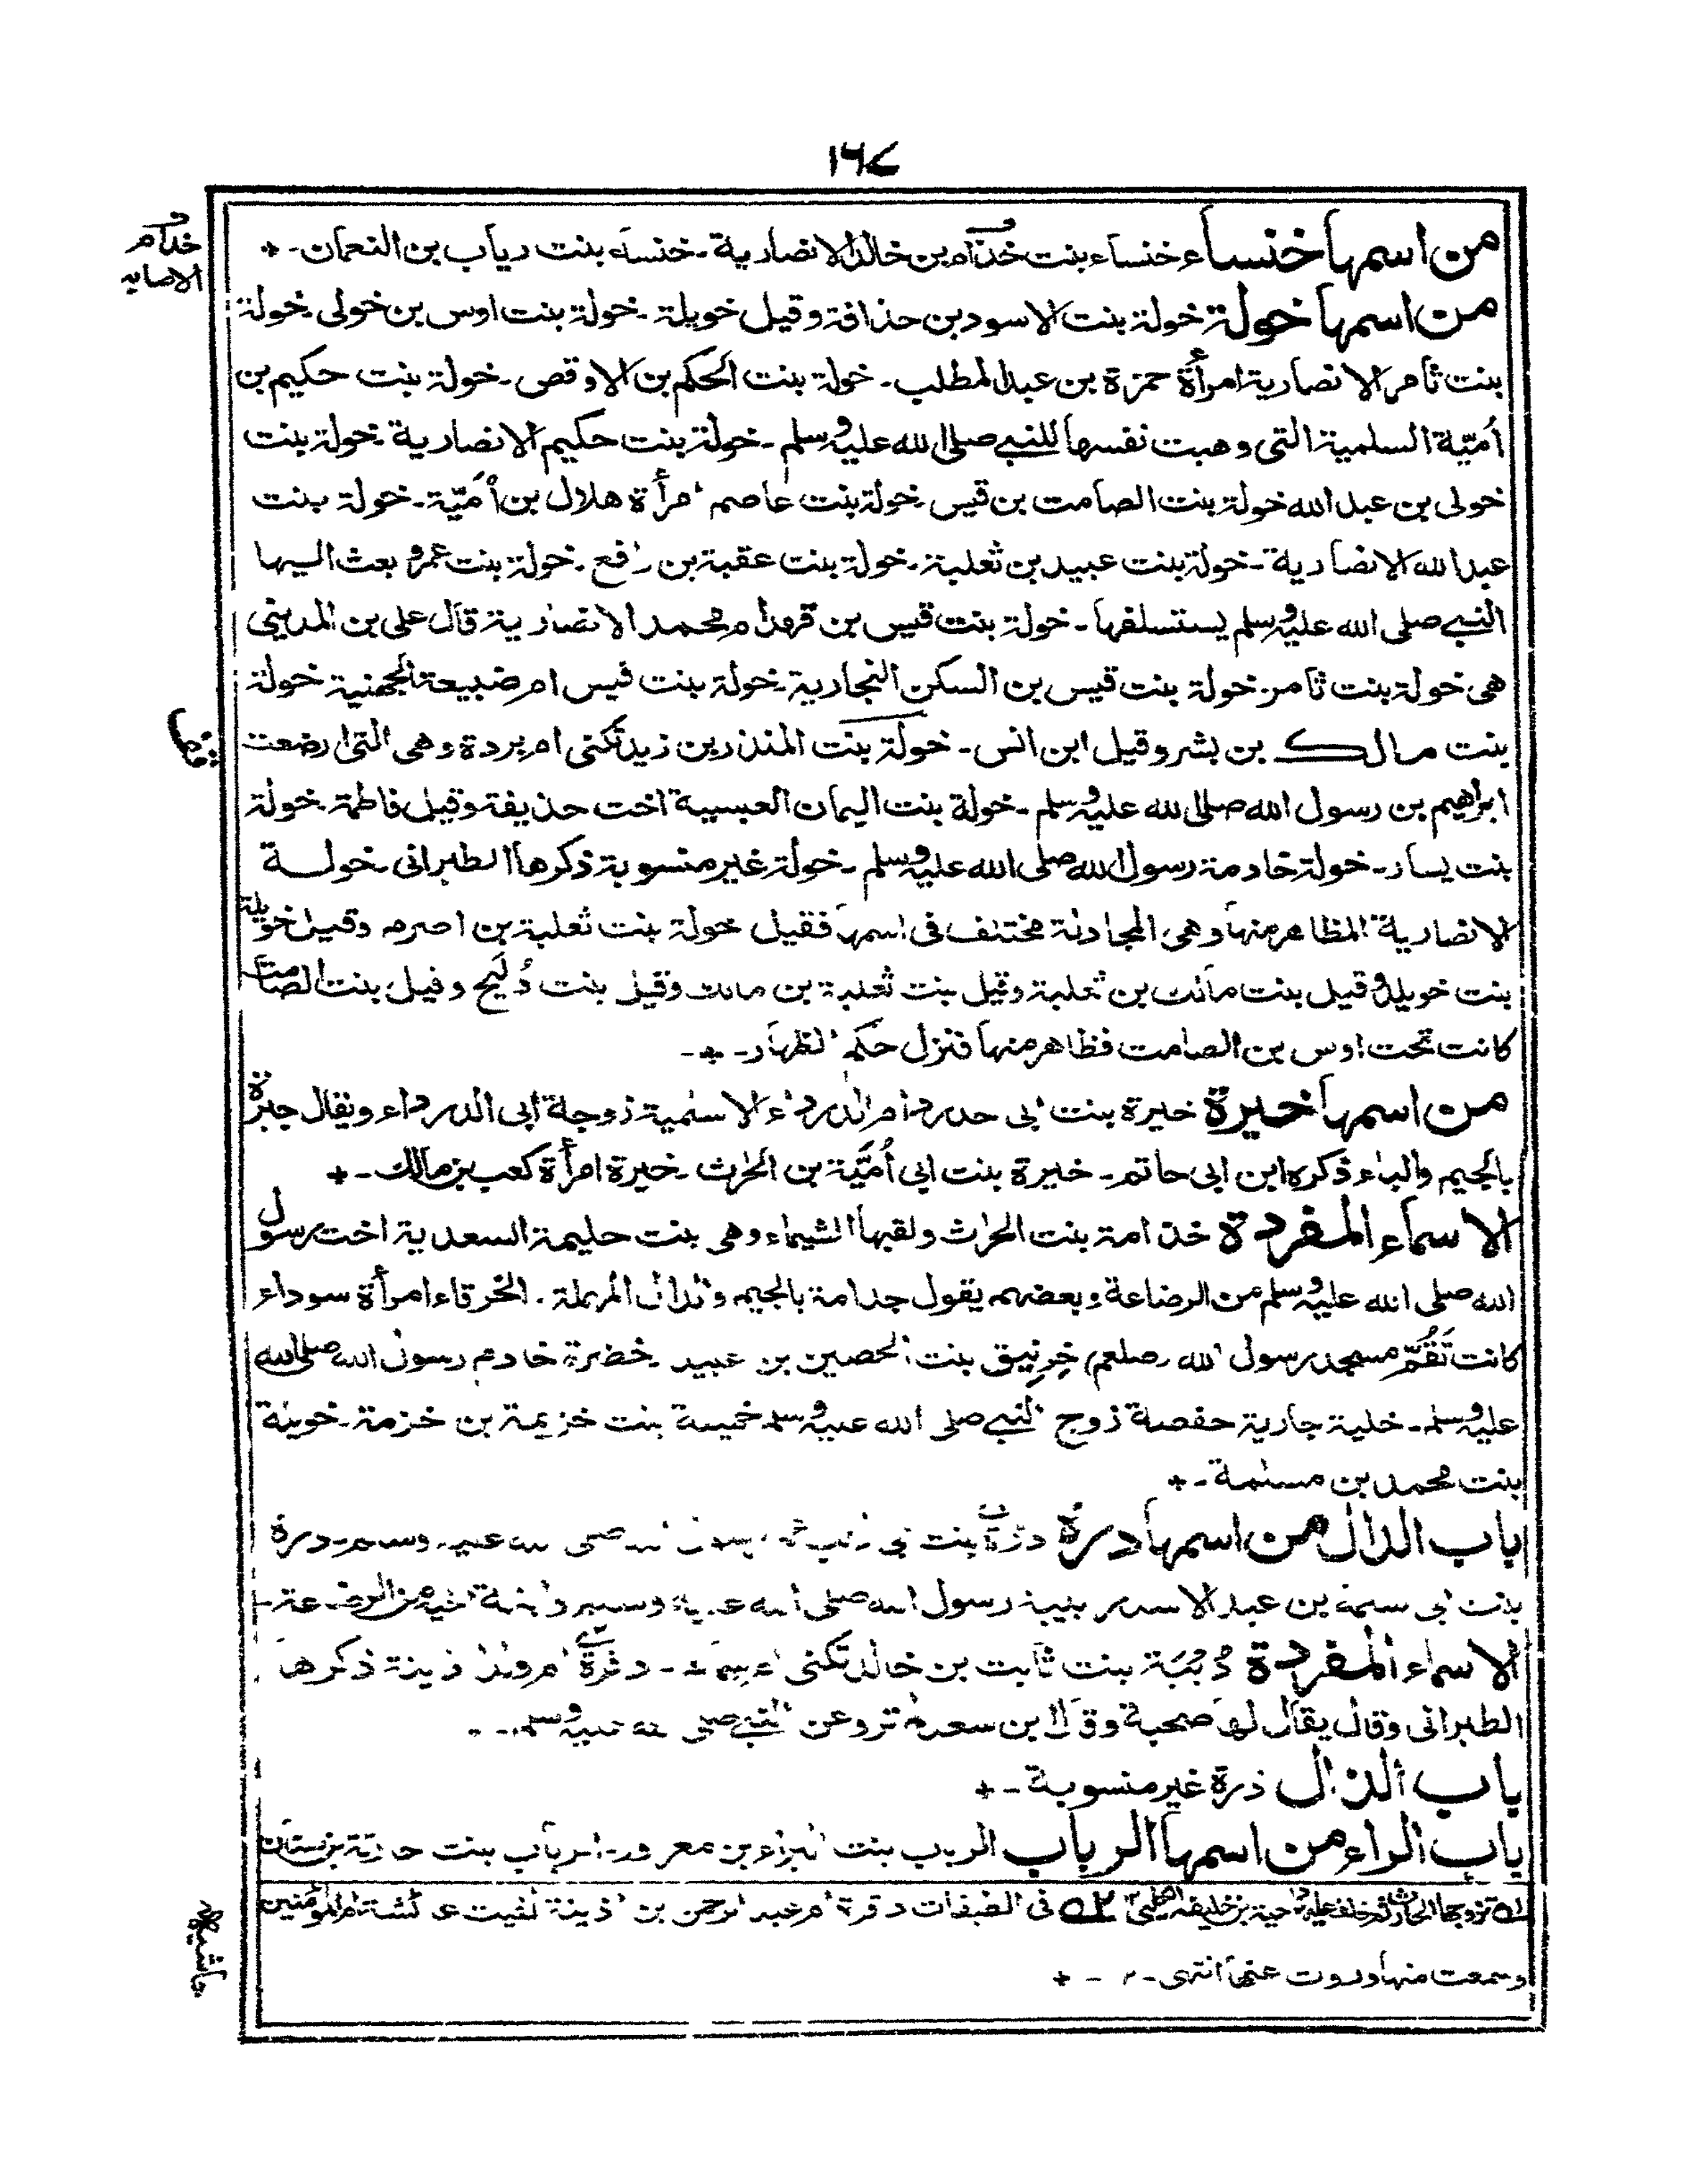 ١٦٧
من اسمها خنساء خنساء بنت خذام بن خالد الانصارية ـ خنساء بنت رياب بن النعمان ـ ٭
خدام
الاصابه
من اسمها خولة خولة بنت الاسود بن حذافة وقيل خويلة ـ خولة بنت اوس بن خولى ـ خولة
بنت ثامر الانصارية امرأة حمزة بن عبد المطلب ـ خولة بنت الحكم بن الاوقص ـ خولة بنت حكيم بن
اُميّة السلمية التى وهبت نفسها للنبي صلى الله عليه وسلم ـ خولة بنت حكيم الانصارية ـ خولة بنت
خولى بن عبد الله خولة بنت الصامت بن قيس ـ خولة بنت عاصم امرأة هلال بن اُميّة ـ خولة بنت
عبد الله الانصارية ـ خولة بنت عبيد بن ثعلبة ـ خولة بنت عقبة بن رافع ـ خولة بنت عمرو بعث اليها
النبي صلى الله عليه وسلم يستسلفها ـ خولة بنت قيس بن قهد ام محمد الانصارية قال على بن المدينى
هى خولة بنت ثامر ـ خولة بنت قيس بن السكن النجارية ـ خولة بنت قيس ام ضبيعة الجهنية خولة
بنت مالك بن بشر وقيل ابن انس ـ خولة بنت المنذر بن زيد تكنى ام بردة وهى التى ارضعت
ابراهيم بن رسول الله صلى الله عليه وسلم ـ خولة بنت اليمان العبسية اخت حذيفة وقيل فاطمة ـ خولة
بنت يسار ـ خولة خادمة رسول الله صلى الله عليه وسلم ـ خولة غير منسوبة ذكرها الطبرانى ـ خولة
الانصارية المظاهر منها وهى المجادلة مختلف فى اسمها فقيل خولة بنت ثعلبة بن اصرم وقيل خويلة
بنت خويلد وقيل بنت مالك بن ثعلبة وقيل بنت ثعلبة بن مالك وقيل بنت دُلَيح وقيل بنت الصامت
كانت تحت اوس بن الصامت فظاهر منها فنزل حكم الظهار ـ ٭ ـ
من اسمها خيرة خيرة بنت ابى حدرد ام الدرداء الاسلمية زوجة ابى الدرداء ويقال جبرة
بالجيم والباء ذكره ابن ابى حاتم ـ خيرة بنت ابى اُميّة بن الحارث ـ خيرة امرأة كعب بن مالك ـ ٭
الاسماء المفردة خذامة بنت الحارث ولقبها الشيماء وهى بنت حليمة السعدية اخت رسول
الله صلى الله عليه وسلم من الرضاعة وبعضهم يقول جدامة بالجيم والدال المهملة ـ الخرقاء امرأة سوداء
كانت تَقُمّ مسجد رسول الله صلعم خِرنيق بنت الحصين بن عبيد ـ خضرة خادم رسول الله صلى الله
عليه وسلم ـ خلية جارية حفصة زوج النبي صلى الله عليه وسلم خميسة بنت خزيمة بن خزمة ـ خويلة
بنت محمد بن مسلمة ـ ٭
باب الدال من اسمها درة درّة بنت ابى لهب صلى الله عليه وسلم ـ درة
بنت ابى سلمة بن عبد الاسد ربيبة رسول الله صلى الله عليه وسلم وابنة اخيه من الرضاعة ـ
الاسماء المفردة دُبَيّة بنت ثابت بن خالد تكنى ام سماك ـ دقرة ام ولد اذينة ذكرها
الطبرانى وقال يقال لها صحبة وقال ابن سعد لم ترو عن النبي صلى الله عليه وسلم ـ
باب الذال ذرة غير منسوبة ـ ٭
باب الراء من اسمها الرباب الرباب بنت البراء بن معرور ـ الرباب بنت حارثة بن سنان
تزوجها الحارث ثم خلف عليها دحية بن خليفة الكلبى ١٢ ٢ فى الطبقات دقرة ام عبد الرحمن بن اذينة لقيت عائشة ام المؤمنين
وسمعت منها وروت عنها انتهى ـ ٭
حاشيه